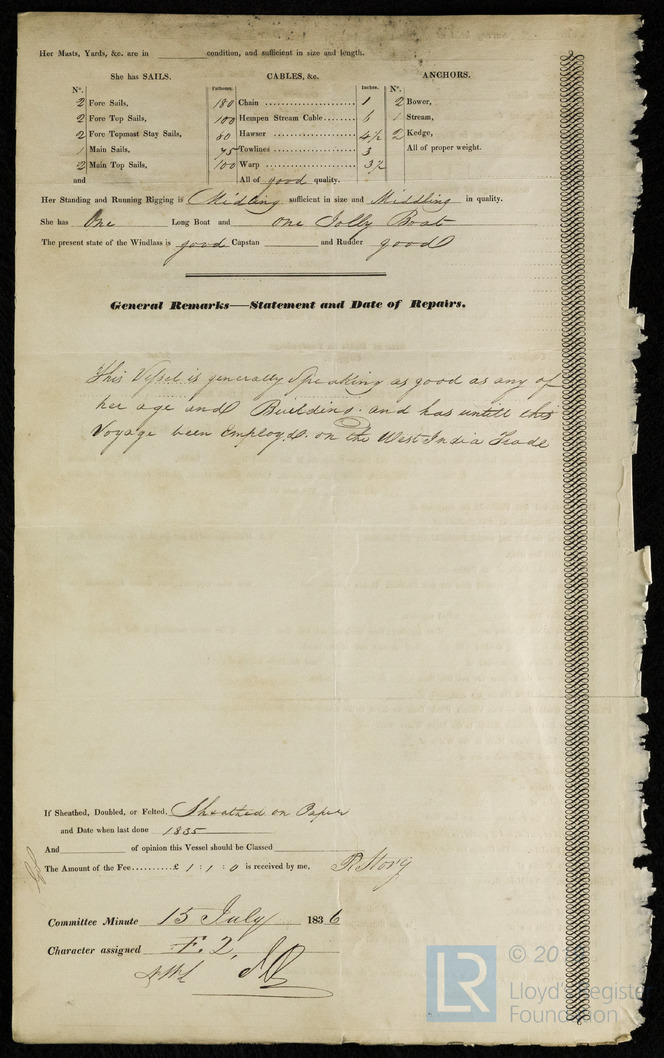 Her Masts, Yards, &c. are in condition, and sufficient in size and length.
She has SAILS. CABLES, &c. ANCHORS.
N°. Fathoms. Inches. N°.
2 Fore Sails, 180 Chain 1 2 Bower,
2 Fore Top Sails, 100 Hempen Stream Cable 6 1 Stream,
2 Fore Topmast Stay Sails, 80 Hawser 4½ 2 Kedge,
1 Main Sails, 75 Towlines 3 All of proper weight.
2 Main Top Sails, 100 Warp 3½
and All of good quality.
Her Standing and Running Rigging is Midling sufficient in size and Middling in quality.
She has One Long Boat and one Jolly Boat
The present state of the Windlass is good Capstan and Rudder good
General Remarks—Statement and Date of Repairs.
This Vessel is generally Speaking as good as any of
her age and Building. and has untill this
Voyage been Employd. on the West India Trade
If Sheathed, Doubled, or Felted, Sheathed on Paper
and Date when last done 1835
And of opinion this Vessel should be Classed
The Amount of the Fee..........£ 1 : 1 : 0 is received by me,
Committee Minute 15 July 1836
Character assigned F. 2,
LR
Lloyd's Register
Foundation